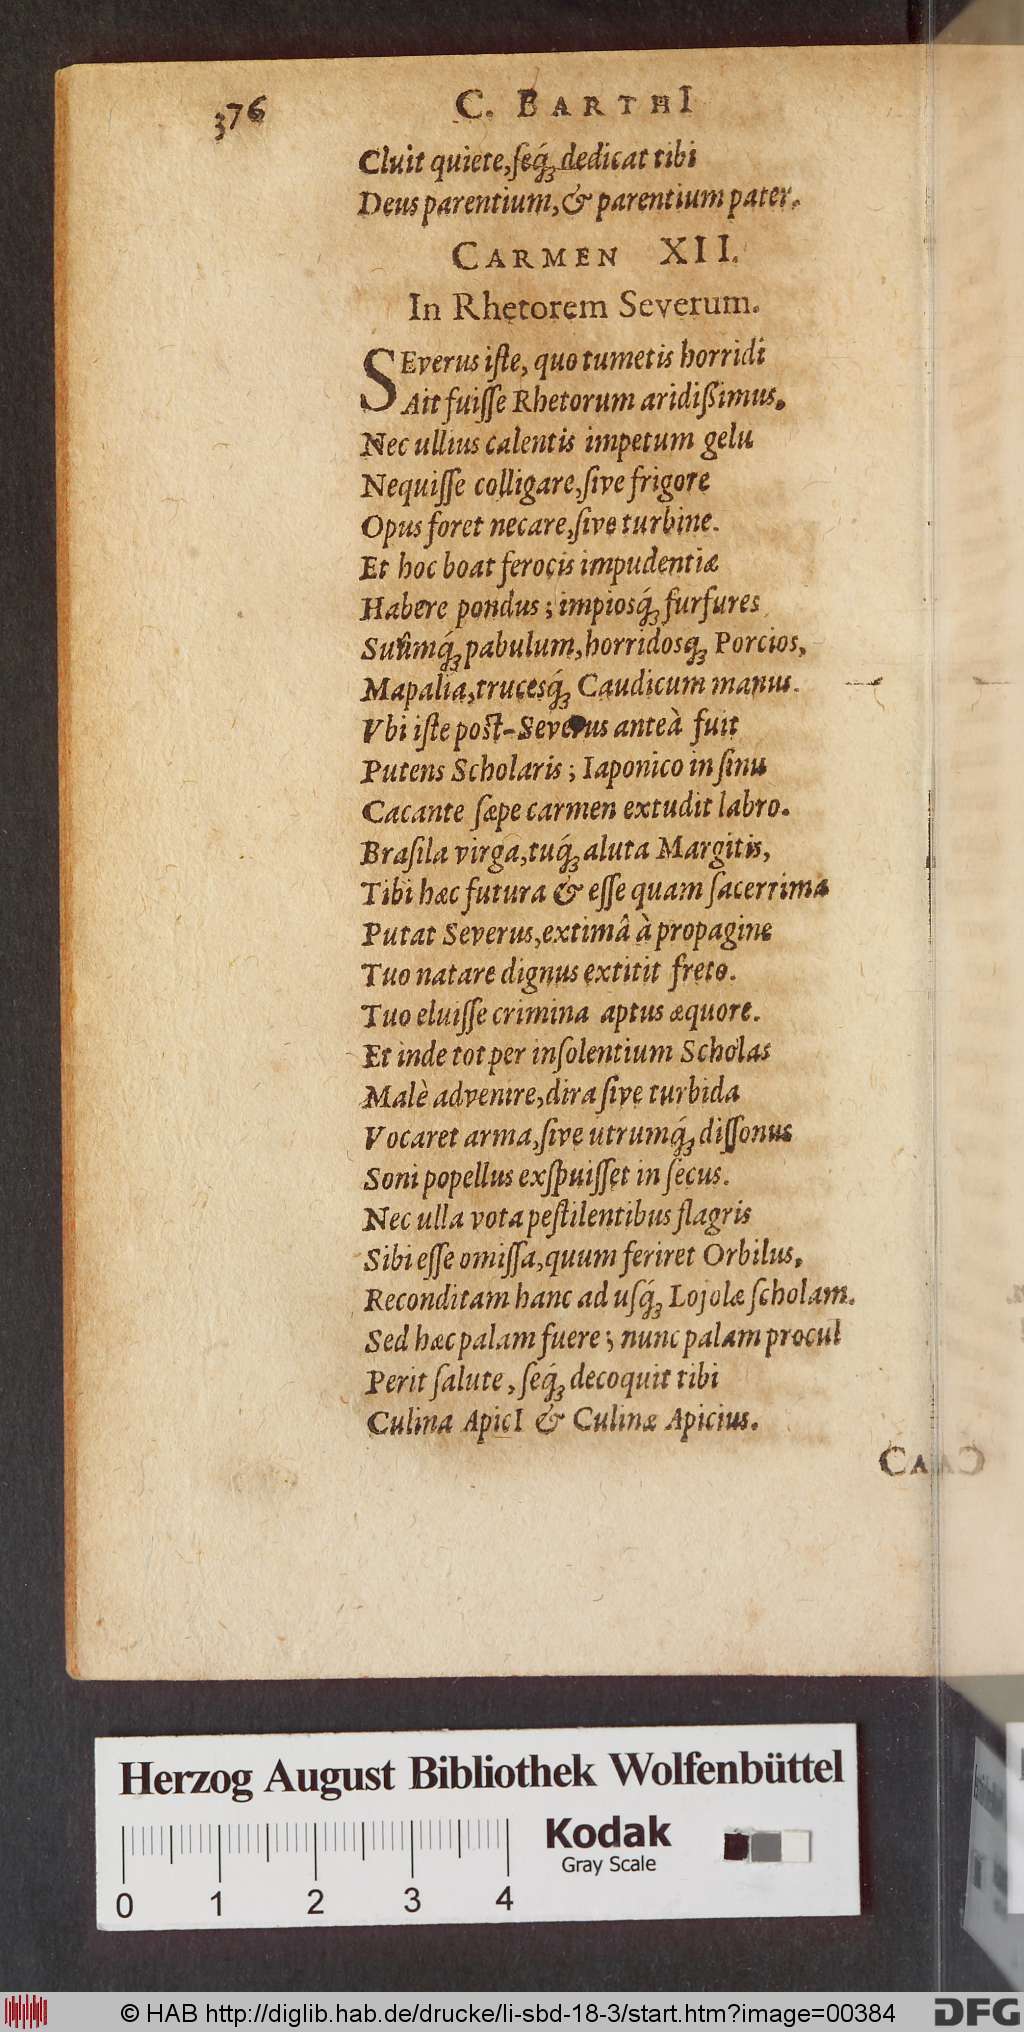 376
C. BARTHI
Cluit quiete, ſeq́ꝫ dedicat tibi
Deus parentium, & parentium pater.
CARMEN XII.
In Rhetorem Severum.
SEverus iſte, quo tumetis horridi
Ait fuiſſe Rhetorum aridiſſimus.
Nec ullius calentis impetum gelu
Nequiſſe colligare, ſive frigore
Opus foret necare, ſive turbine.
Et hoc boat ferocis impudentiæ
Habere pondus; impiosq́ꝫ furfures
Suûmq́ꝫ pabulum, horridosqꝫ Porcios,
Mapalia, trucesq́ꝫ Caudicum manus.
Vbi iſte poſt-Severus anteà fuit
Putens Scholaris; Iaponico in ſinu
Cacante ſæpe carmen extudit labro.
Braſila virga, tuq́ꝫ aluta Margitis,
Tibi hæc futura & eſſe quam ſacerrima
Putat Severus, extimâ à propagine
Tuo natare dignus extitit freto.
Tuo eluiſſe crimina aptus æquore.
Et inde tot per inſolentium Scholas
Malè advenire, dira ſive turbida
Vocaret arma, ſive utrumq́ꝫ diſſonus
Soni popellus exſpuiſſet in ſecus.
Nec ulla vota peſtilentibus flagris
Sibi eſſe omiſſa, quum feriret Orbilus,
Reconditam hanc ad uſq́ꝫ Lojolæ ſcholam.
Sed hæc palam fuere; nunc palam procul
Perit ſalute, ſeq́ꝫ decoquit tibi
Culina ApicI & Culinæ Apicius.
Herzog August Bibliothek Wolfenbüttel
Kodak
Gray Scale
0 1 2 3 4
© HAB http://diglib.hab.de/drucke/li-sbd-18-3/start.htm?image=00384
DFG